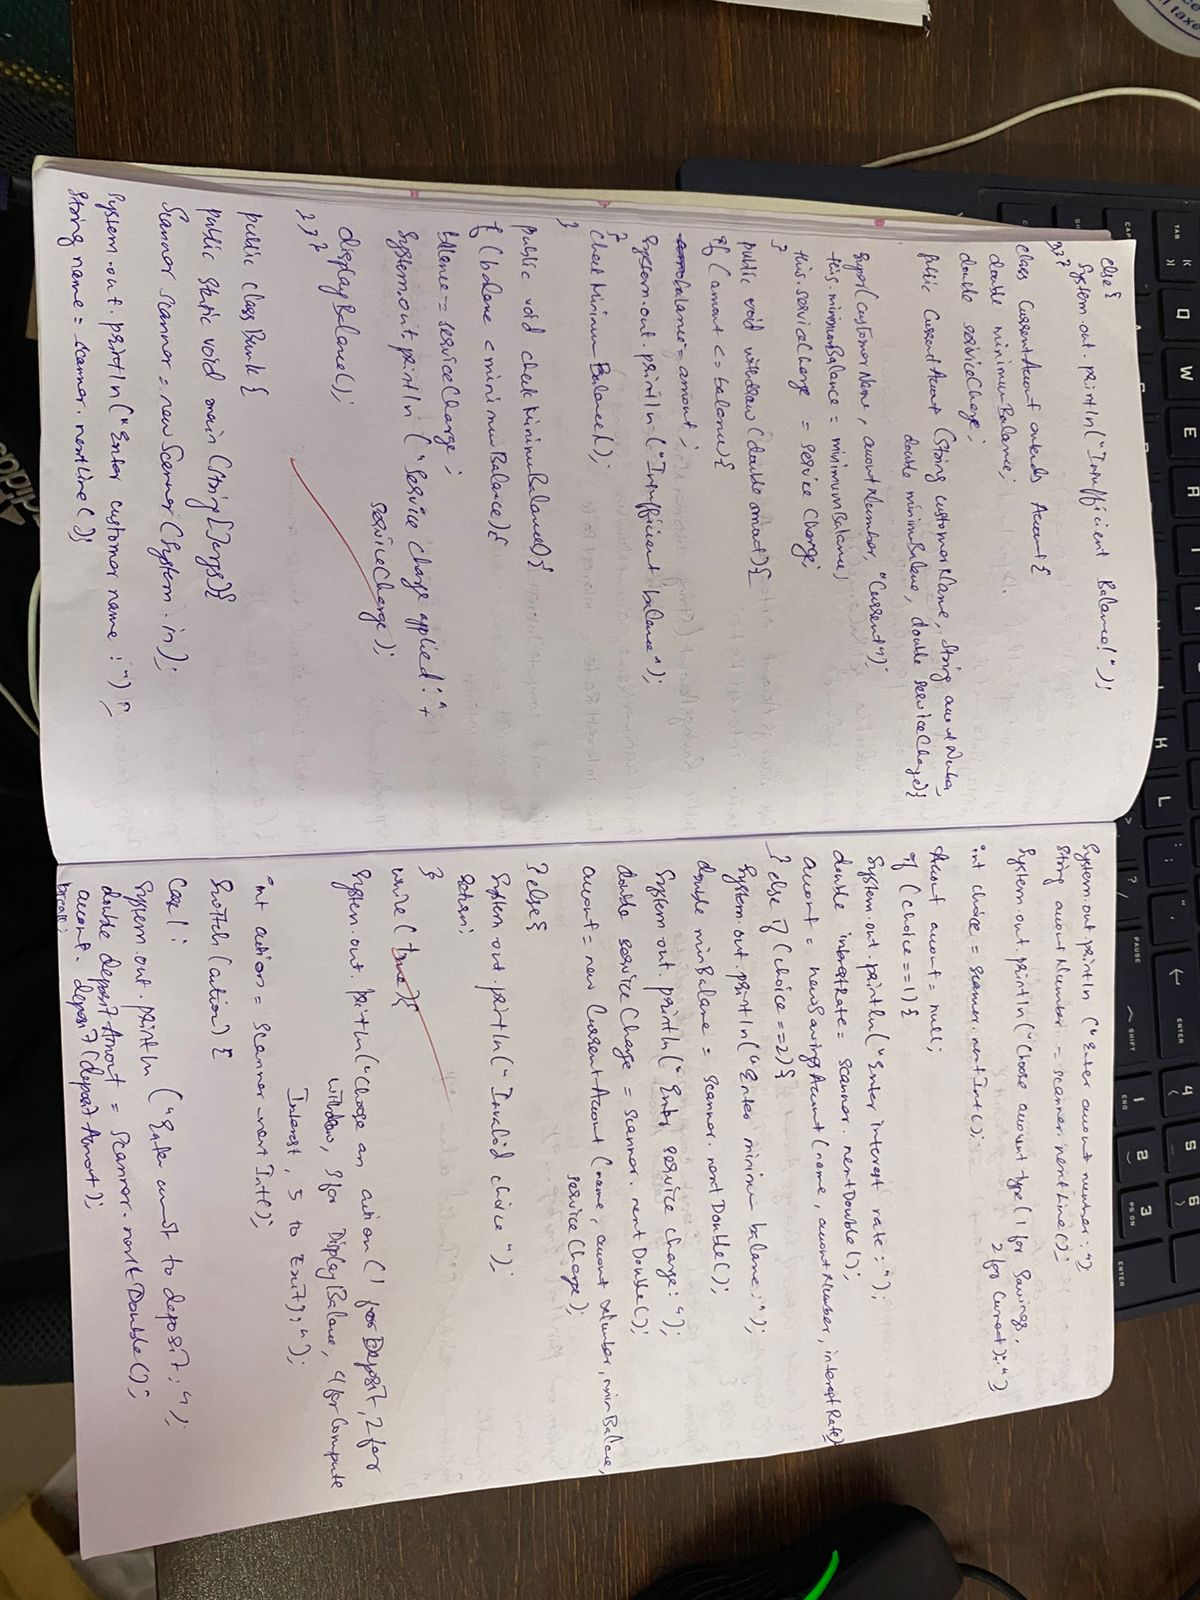 else{
System.out.println("Insufficient Balance!");
}}}
class CurrentAccount extends Account {
double minimumBalance;
double serviceCharge;
public CurrentAccount (String customerName, String accountNumber,
double minimumBalance, double serviceCharge){
super(customerName, accountNumber, "Current");
this.minimumBalance = minimumBalance;
this.serviceCharge = serviceCharge;
}
public void withdraw (double amount){
if (amount <= balance){
balance -= amount;
System.out.println ("Insufficient balance");
}
checkMinimumBalance();
}
public void checkMinimumBalance(){
if (balance < minimumBalance){
balance -= serviceCharge;
System.out.println ("Service charge applied:" +
serviceCharge);
displayBalance();
}}}
public class Bank {
public static void main (String[]args){
Scanner scanner = new Scanner (System.in);
System.out.println ("Enter customer name :");
String name = scanner.nextLine();
System.out.println ("Enter account number:");
String accountNumber = scanner.nextLine();
System.out.println("Choose account type (1 for Savings,
2 for Current):")
int choice = scanner.nextInt();
Account account = null;
if (choice == 1){
System.out.println("Enter interest rate:");
double interestRate = scanner.nextDouble();
account = new SavingsAccount (name, accountNumber, interestRate)
} else if (choice == 2){
System.out.println("Enter minimum balance:");
double minBalance = scanner.nextDouble();
System.out.println("Enter service charge:");
double serviceCharge = scanner.nextDouble();
account = new CurrentAccount (name, accountNumber, minBalance,
serviceCharge);
} else{
System.out.println("Invalid choice");
return;
}
while (true){
System.out.println("Choose an action (1 for Deposit, 2 for
withdraw, 3 for DisplayBalance, 4 for Compute
Interest, 5 to Exit):");
int action = scanner.nextInt();
Switch (action) {
Case 1:
System.out.println ("Enter amount to deposit:");
double depositAmount = scanner.nextDouble();
account.deposit(depositAmount);
break;
TAB
CAPS
PAUSE
SHIFT
ENTER
END
PG DN
ENTER
Q
W
E
R
K
L
1
2
3
4
5
6